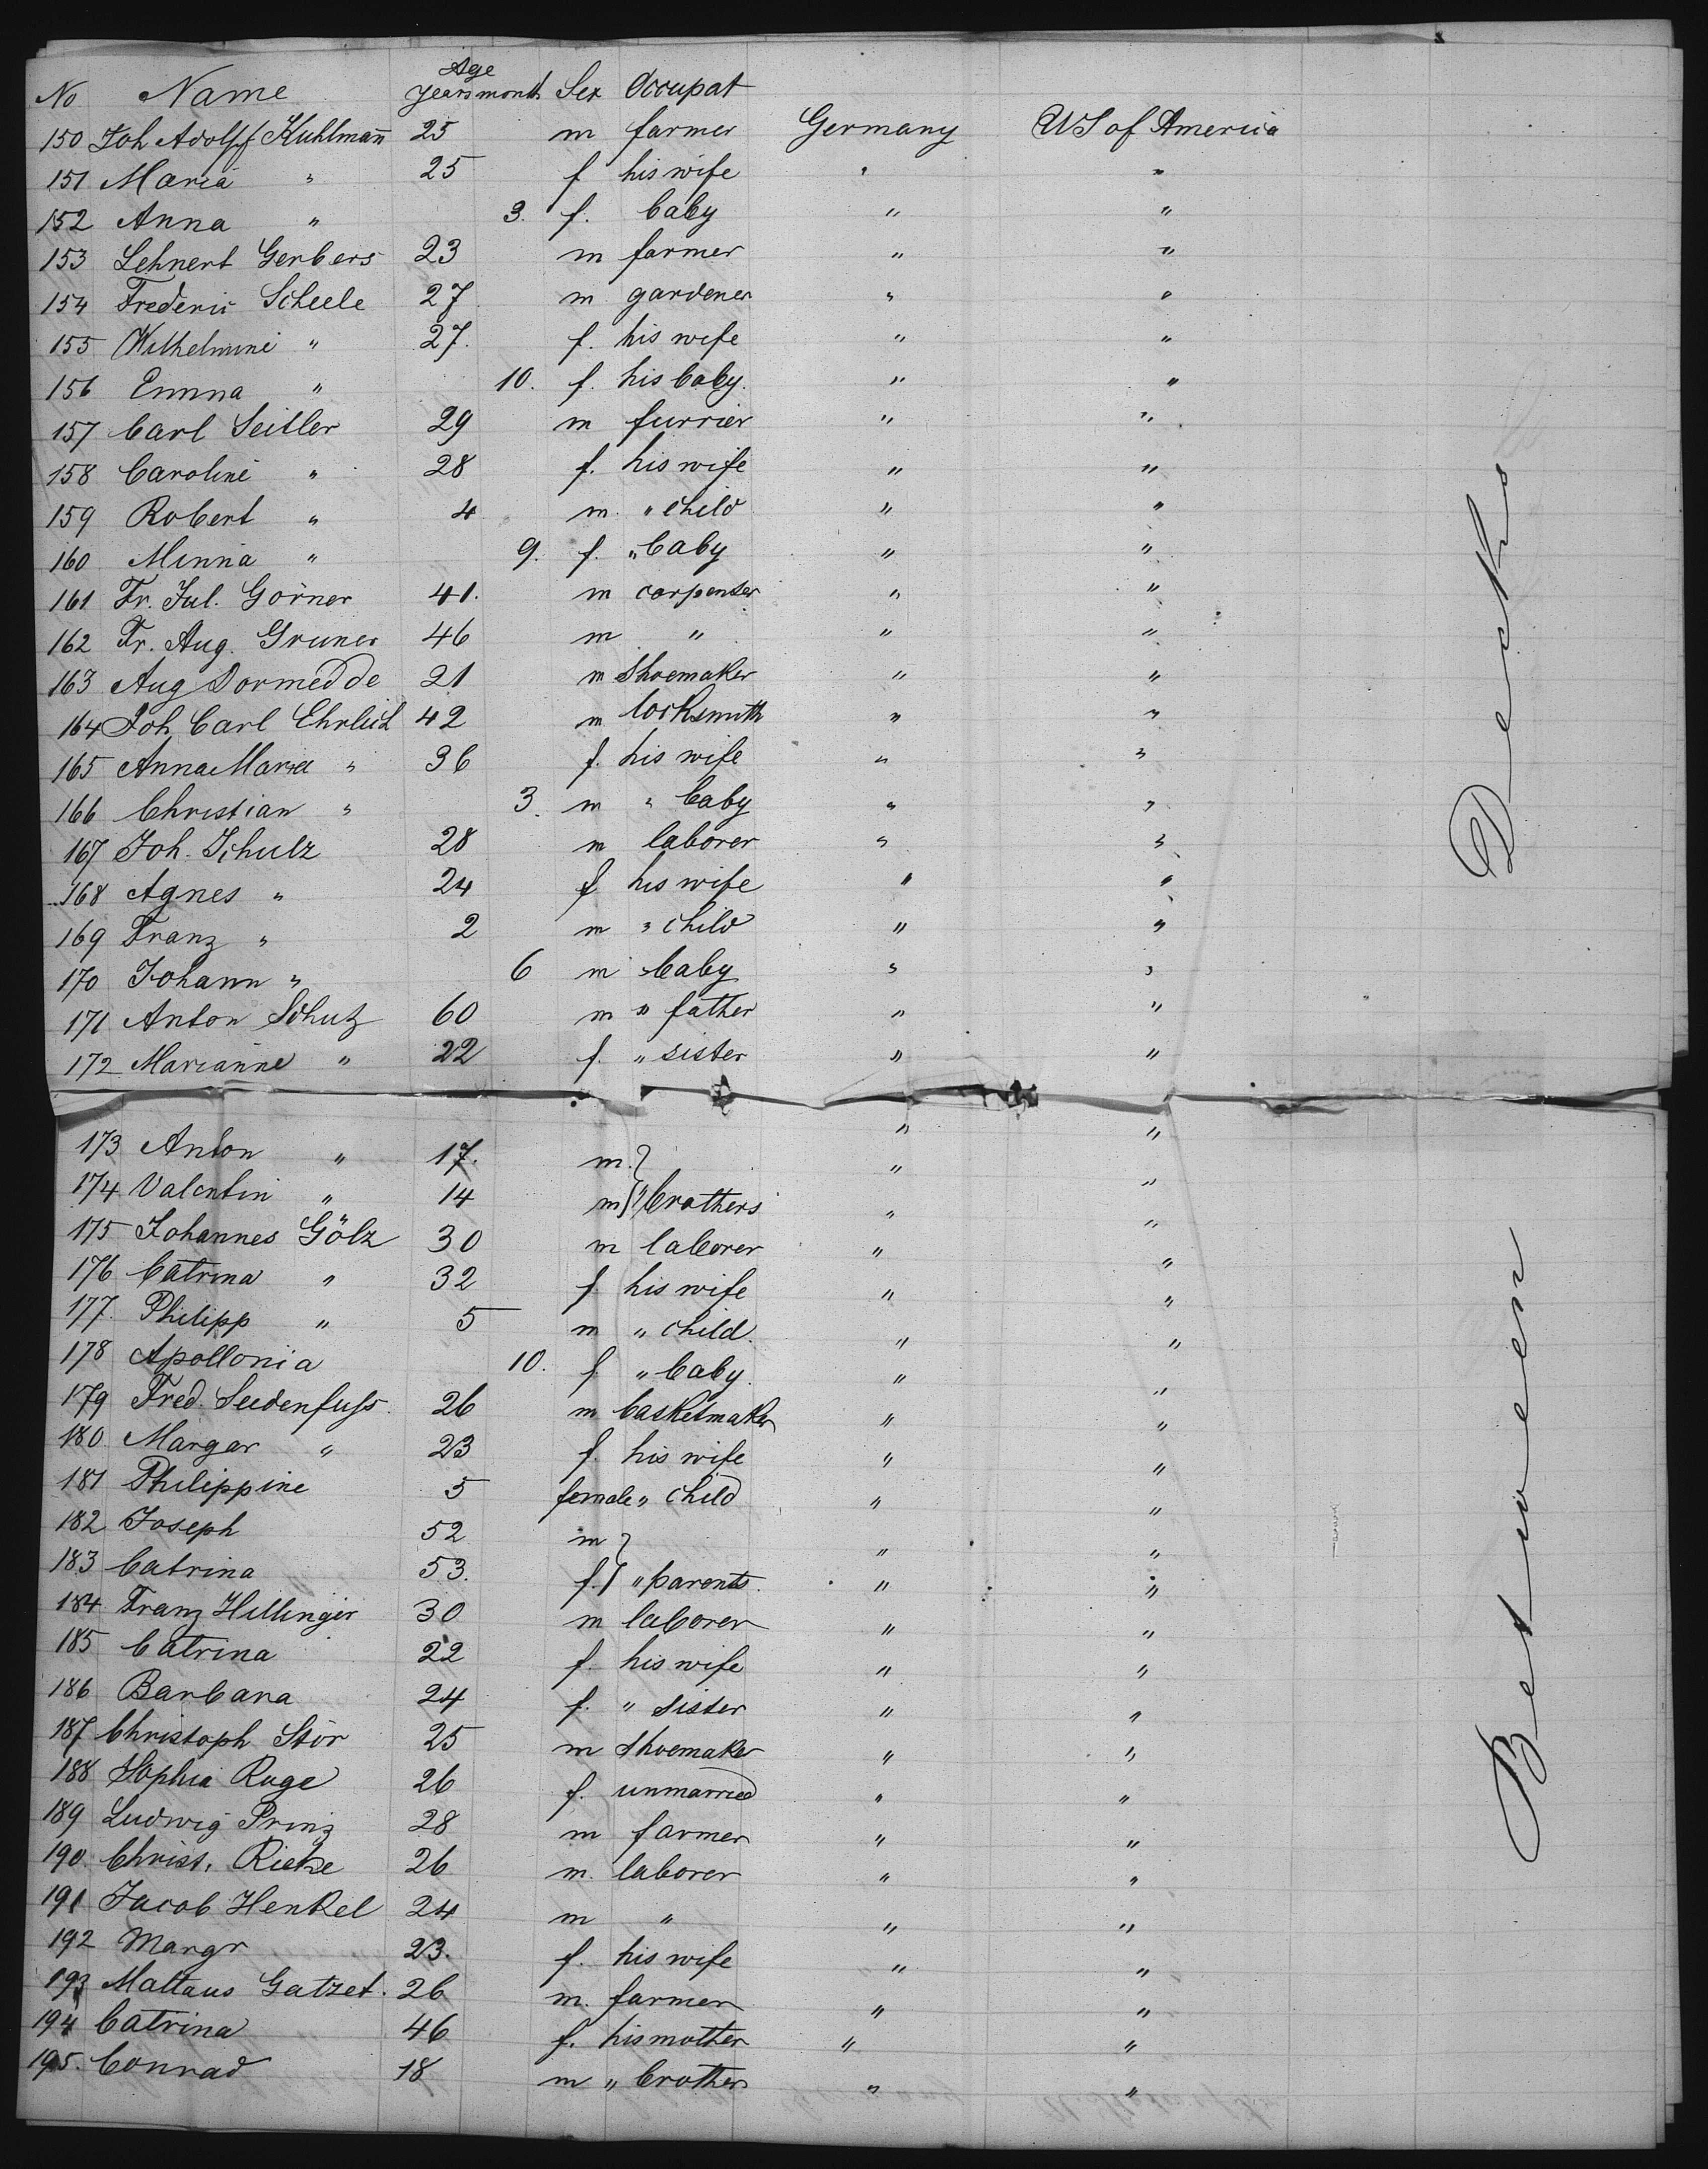 Age
No Name years month Sex Occupat
150 Joh Adolff Kuhlmañ 25 m farmer Germany US of America
151 Maria " 25 f his wife " "
152 Anna " 3. f. baby " "
153 Lehnert Gerbers 23 m farmer " "
154 Frederic Scheele 27 m gardener " "
155 Wilhelmine " 27. f. his wife " "
156 Emma " 10. f. his baby. " "
157 Carl Seitler 29 m furrier " "
158 Caroline " 28 f. his wife " "
159 Robert " 4 m. " child " "
160 Minna " 9. f. " baby " "
161 Fr. Jul. Görner 41. m carpenter " "
162 Fr. Aug. Gruner 46 m " " "
163 Aug Dormedde 21 m Shoemaker " "
164 Joh Carl Ehrlich 42 m locksmith " "
165 Anna Maria " 36 f. his wife " "
166 Christian " 3. m " baby " "
167 Joh. Schulz 28 m laborer " "
168 Agnes " 24 f his wife " "
169 Franz " 2 m " child " "
170 Johann " 6 m " baby " "
171 Anton Schutz 60 m " father " "
172 Marianne " 22 f. " sister " "
173 Anton " 17. m. } " "
174 Valentin " 14 m } " brothers " "
175 Johannes Gölz 30 m laborer " "
176 Catrina " 32 f. his wife " "
177. Philipp " 5 m " child. " "
178 Apollonia 10. f. " baby. " "
179 Fred. Seedenfuss. 26 m basketmaker " "
180. Margar " 23 f. his wife " "
181 Philippine 5 female " child " "
182 Joseph 52 m } " "
183 Catrina 53. f. } " parents. " "
184 Franz Hillinger 30 m laborer " "
185 Catrina 22 f. his wife " "
186 Barbara 24 f. " sister " "
187 Christoph Stör 25 m shoemaker " "
188 Sophia Ruge 26 f. unmarried " "
189 Ludwig Prinz 28 m farmer " "
190. Christ. Rieke 26 m. laborer " "
191 Jacob Henkel 24 m " " "
192 Margr 23. f. his wife " "
193 Mattaus Gatzet. 26 m. farmer " "
194 Catrina 46 f. his mother " "
195. Conrad 18 m " brother " "
Between Decks